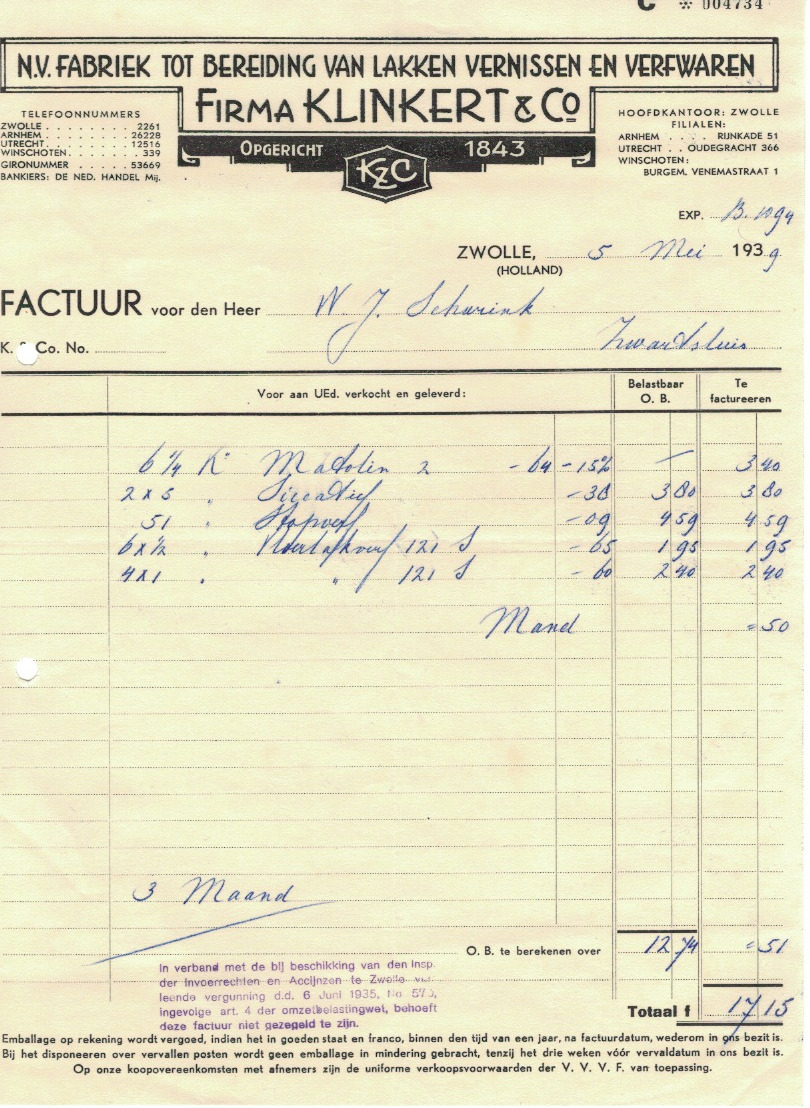 C * 004734
N.V. FABRIEK TOT BEREIDING VAN LAKKEN VERNISSEN EN VERFWAREN
FIRMA KLINKERT & Co
OPGERICHT 1843
KZC
TELEFOONNUMMERS
ZWOLLE . . . . . . . . 2261
ARNHEM . . . . . . . . 26228
UTRECHT . . . . . . . . 12516
WINSCHOTEN . . . . . . . . 339
GIRONUMMER . . . . 53669
BANKIERS: DE NED. HANDEL Mij.
HOOFDKANTOOR: ZWOLLE
FILIALEN:
ARNHEM . . . . RIJNKADE 51
UTRECHT . . OUDEGRACHT 366
WINSCHOTEN:
BURGEM. VENEMASTRAAT 1
EXP. B. 1094
ZWOLLE, 5 Mei 1939
(HOLLAND)
FACTUUR voor den Heer W. J. Schurink
K. & Co. No. Zwartsluis
Voor aan UEd. verkocht en geleverd: Belastbaar O. B. Te factureeren
6 1/4 K° Matolin 2 - 64 - 15% — 3 40
2 x 5 " Siccatief - 38 3 80 3 80
51 " Stopverf - 09 4 59 4 59
6 x 1/2 " Vloerlakverf 121 S - 65 1 95 1 95
4 x 1 " " 121 S - 60 2 40 2 40
Mand = 50
3 Maand
O. B. te berekenen over 12 74 = 51
In verband met de bij beschikking van den Insp.
der Invoerrechten en Accijnzen te Zwolle ver-
leende vergunning d.d. 6 Juni 1935, No
ingevolge art. 4 der omzetbelastingwet, behoeft
deze factuur niet gezegeld te zijn.
Totaal f 17 15
Emballage op rekening wordt vergoed, indien het in goeden staat en franco, binnen den tijd van een jaar, na factuurdatum, wederom in ons bezit is.
Bij het disponeeren over vervallen posten wordt geen emballage in mindering gebracht, tenzij het drie weken vóór vervaldatum in ons bezit is.
Op onze koopovereenkomsten met afnemers zijn de uniforme verkoopsvoorwaarden der V. V. V. F. van toepassing.